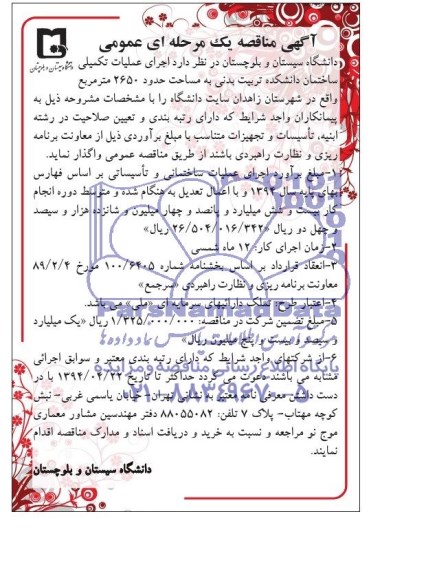 آگهی مناقصه یک مرحله ای عمومی
دانشگاه سیستان و بلوچستان
دانشگاه سیستان و بلوچستان در نظر دارد اجرای عملیات تکمیلی
ساختمان دانشکده تربیت بدنی به مساحت حدود ۲۶۵۰ مترمربع
واقع در شهرستان زاهدان سایت دانشگاه را با مشخصات مشروحه ذیل به
پیمانکاران واجد شرایط که دارای رتبه بندی و تعیین صلاحیت در رشته
ابنیه، تأسیسات و تجهیزات متناسب با مبلغ برآوردی ذیل از معاونت برنامه
ریزی و نظارت راهبردی باشند از طریق مناقصه عمومی واگذار نماید.
۱-مبلغ برآورد اجرای عملیات ساختمانی و تأسیساتی بر اساس فهارس
بهای پایه سال ۱۳۹۴ و با اعمال تعدیل به هنگام شده و متوسط دوره انجام
کار بیست و شش میلیارد و پانصد و چهار میلیون و شانزده هزار و سیصد
و چهل دو ریال «۲۶/۵۰۴/۰۱۶/۳۴۲ ریال»
۲-زمان اجرای کار: ۱۲ ماه شمسی
۳-انعقاد قرارداد بر اساس بخشنامه شماره ۱۰۰/۶۴۰۵ مورخ ۸۹/۲/۴
معاونت برنامه ریزی و نظارت راهبردی «سرجمع»
۴-اعتبار طرح: تملک دارائیهای سرمایه ای «ملی» می باشد.
۵-مبلغ تضمین شرکت در مناقصه: ۱/۳۲۵/۰۰۰/۰۰۰ ریال «یک میلیارد
و سیصد و بیست و پنج میلیون ریال»
۶-از شرکتهای واجد شرایط که دارای رتبه بندی معتبر و سوابق اجرائی
مشابه می باشند دعوت می گردد حداکثر تا تاریخ ۱۳۹۴/۰۴/۲۲ با در
دست داشتن معرفی نامه معتبر به نشانی تهران- خیابان یاسمی غربی- نبش
کوچه مهتاب- پلاک ۷ تلفن: ۸۸۰۵۵۰۸۲ دفتر مهندسین مشاور معماری
موج نو مراجعه و نسبت به خرید و دریافت اسناد و مدارک مناقصه اقدام
نمایند.
دانشگاه سیستان و بلوچستان
ParsNamadData
پایگاه اطلاع رسانی مناقصه و مزایده
۰۲۱-۸۸۳۴۹۶۷۰-۵